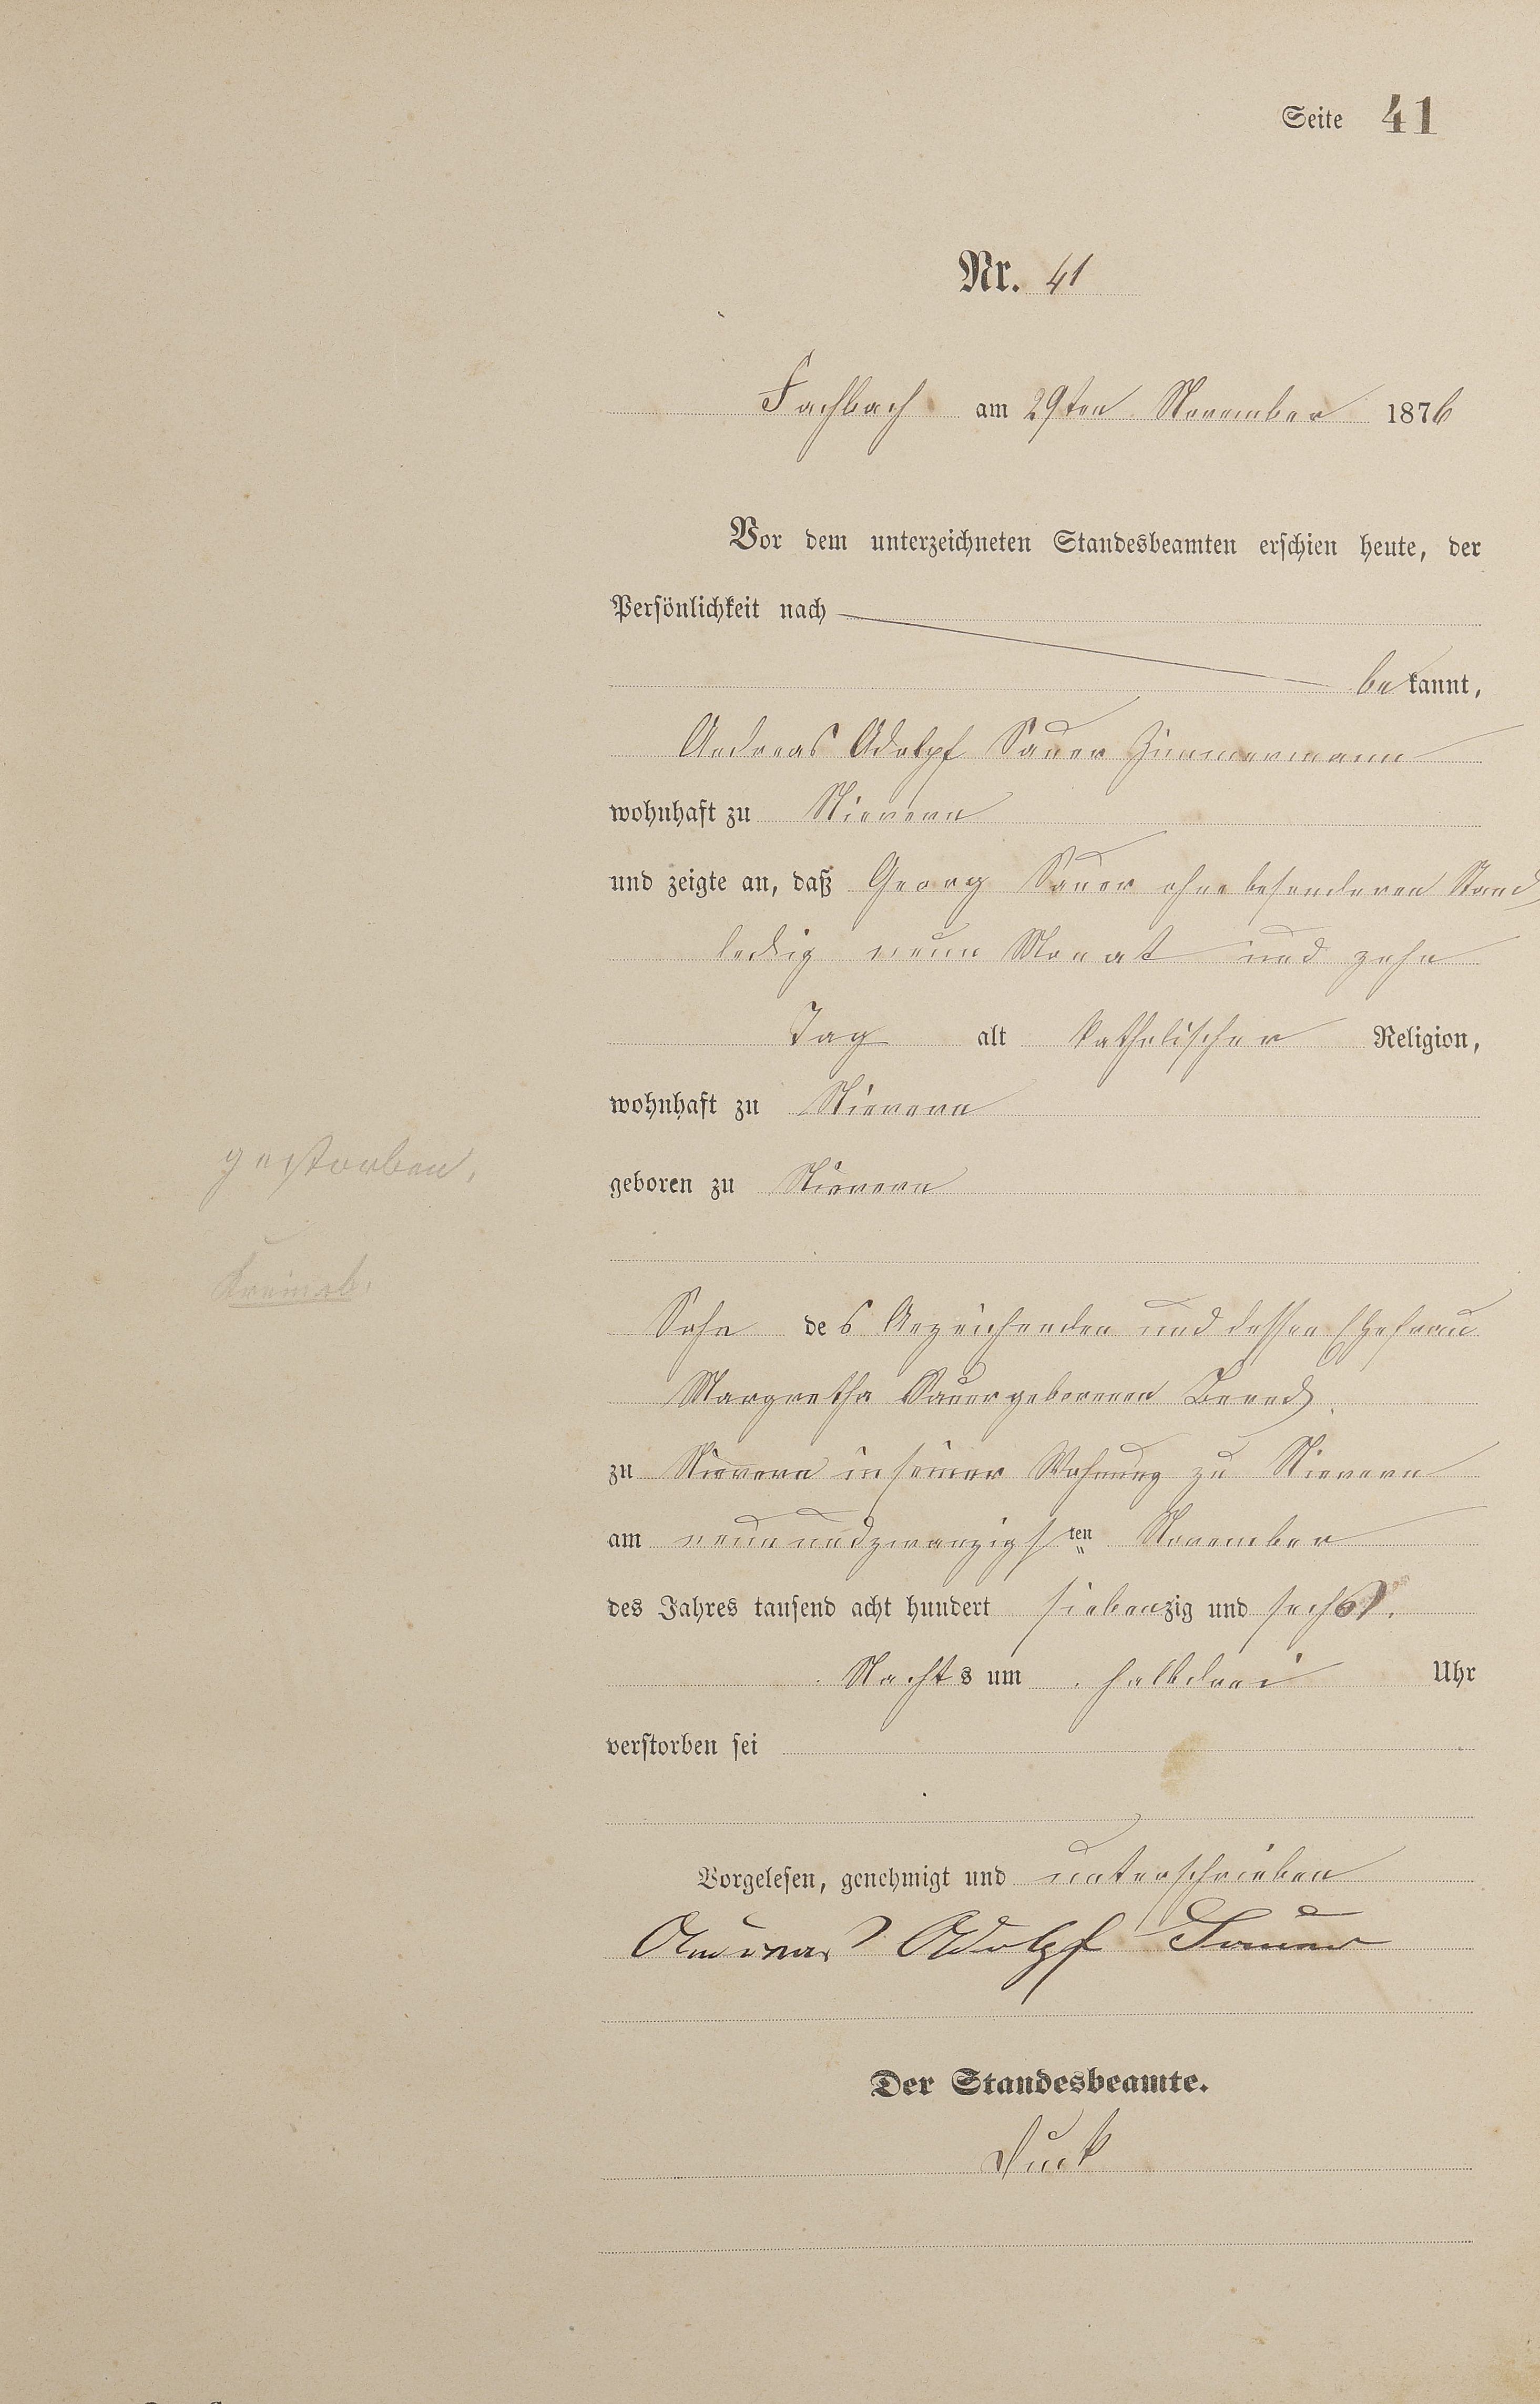 Seite 41
Nr. 41
Fachbach am 29ten November 1876
Vor dem unterzeichneten Standesbeamten erschien heute, der
Persönlichkeit nach
bekannt,
Andreas Adolpf Sauer Zimmermann
wohnhaft zu Nievern
und zeigte an, daß Georg Sauer ohne besonderen Stand
ledig neun Monat und zehn
Tag alt katholischer Religion,
wohnhaft zu Nievern
gestorben,
geboren zu Nievern
Sohn des Anzeichenden und dessen Ehefrau
Margretha Sauer geborenen
zu Nievern in seiner Wohnung zu Nievern
am neunundzwanzigsten November
des Jahres tausend acht hundert siebenzig und sechs.
Nachts um halbdrei Uhr
verstorben sei
Vorgelesen, genehmigt und unterschrieben
Andreas Adolpf Sauer
Der Standesbeamte.